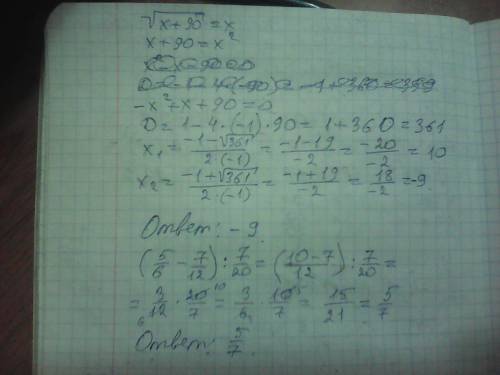 √x+90 = x
x+90 = x²
-x²+x+90=0
D=1-4·(-1)·90=1+360=361
x₁ = (-1-√361)/(2·(-1)) = (-1-19)/-2 = -20/-2 = 10
x₂ = (-1+√361)/(2·(-1)) = (-1+19)/-2 = 18/-2 = -9.
Ответ: -9.
(5/6 - 7/12) : 7/20 = ((10-7)/12) : 7/20 =
= 3/12 · 20/7 = 3/6 · 10/7 = 15/21 = 5/7
Ответ: 5/7.